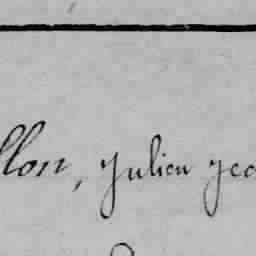 llon, Julien Jea